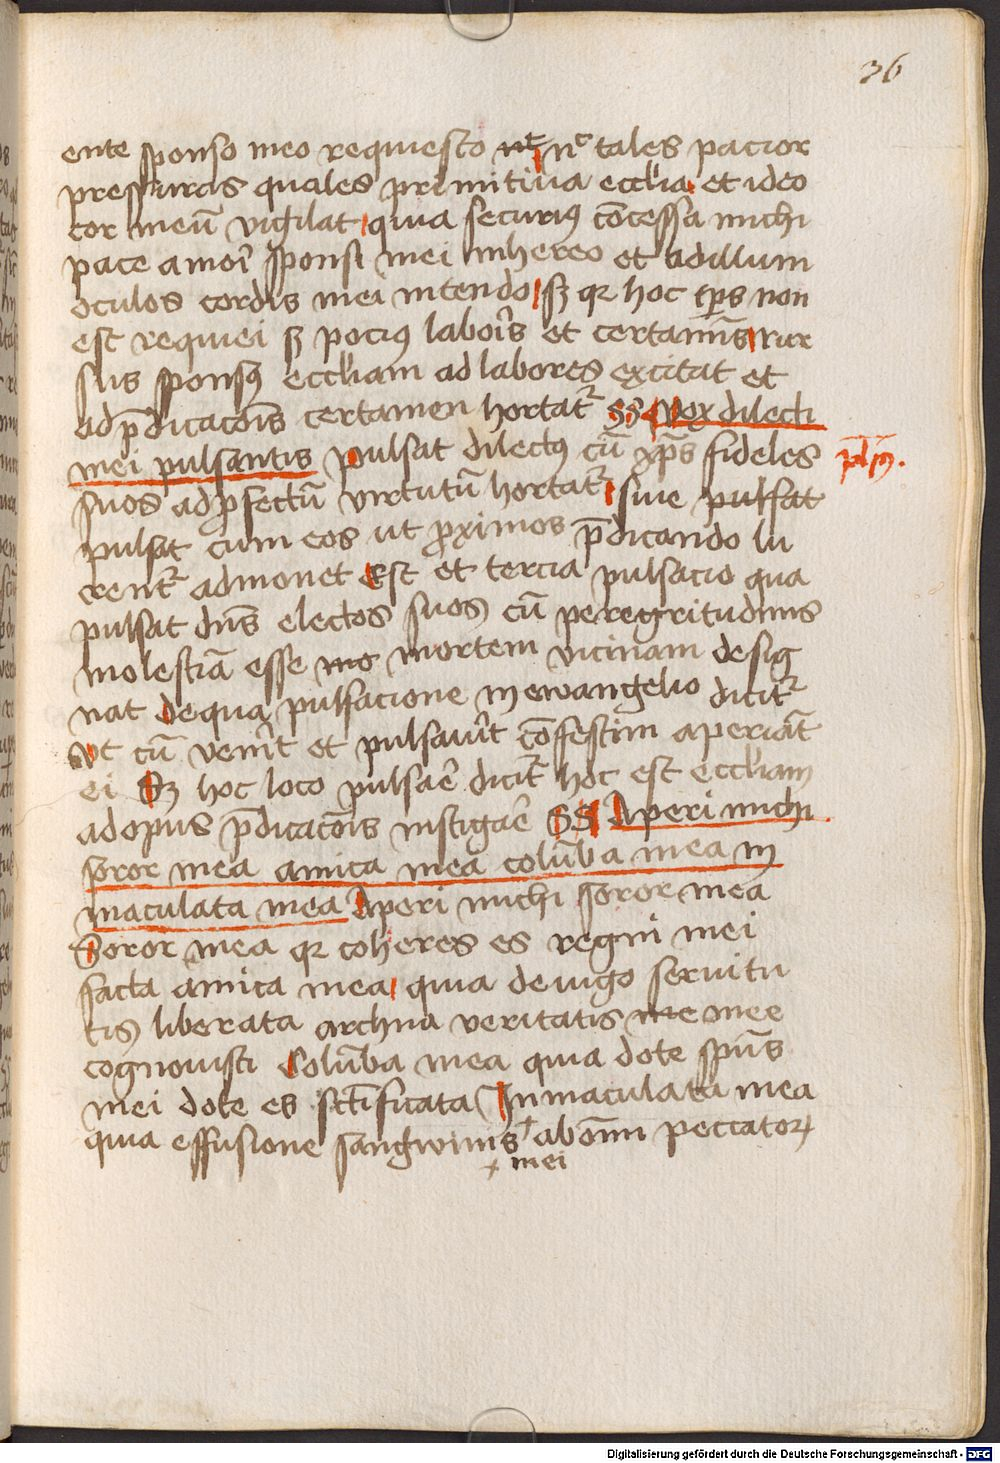 36
ente sponso meo requiesco nec nec tales pacior
pressuras quales primitiua eccl'ia et ideo
cor meū vigilat quia securiꝯ cōcessa michi
pace amori sponsi mei inhereo et ad illum
oculos cordis mei intendo sꝫ qꝛ hoc tp̄s non
est requiei sꝫ pociꝯ laboris et certaminis rur
sus sponsꝯ eccl'iam ad labores excitat et
ad p̄dicacōis certamen hortatᷣ SS vox dilecti
mei pulsantis pulsat dilectꝯ cū xp̄s fideles
pl̄m.
suos ad ꝓfectū virtutū hortatᷣ siue pulsat
pulsat cum eos ut ꝓximos p̄dicando lu
crentᷣ admonet Est et tercia pulsacio qua
pulsat dn̄s electos suos cū per egritudinis
molestiā esse mo mortem vicinam desig
nat de qua pulsacione in ewangelio dicitᷣ
Vt cū venīt et pulsauīt cōfestim aperiāt
ei Sꝫ hoc loco pulsaē dicitᷣ hoc est eccl'iam
ad opus p̄dicacōis instigaē SS Aperi michi
soror mea amica mea colūba mea in
maculata mea Aperi michi soror mea
Soror mea qꝛ coheres es regni mei
facta amica mea quia de iugo seruitu
tis liberata archna veritatis me mee
cognouisti Colūba mea quia dote spūs
mei dote es sctīficata Inmaculata mea
quia effusione sangwinis ab oīm peccatoꝝ
mei
Digitalisierung gefördert durch die Deutsche Forschungsgemeinschaft - DFG